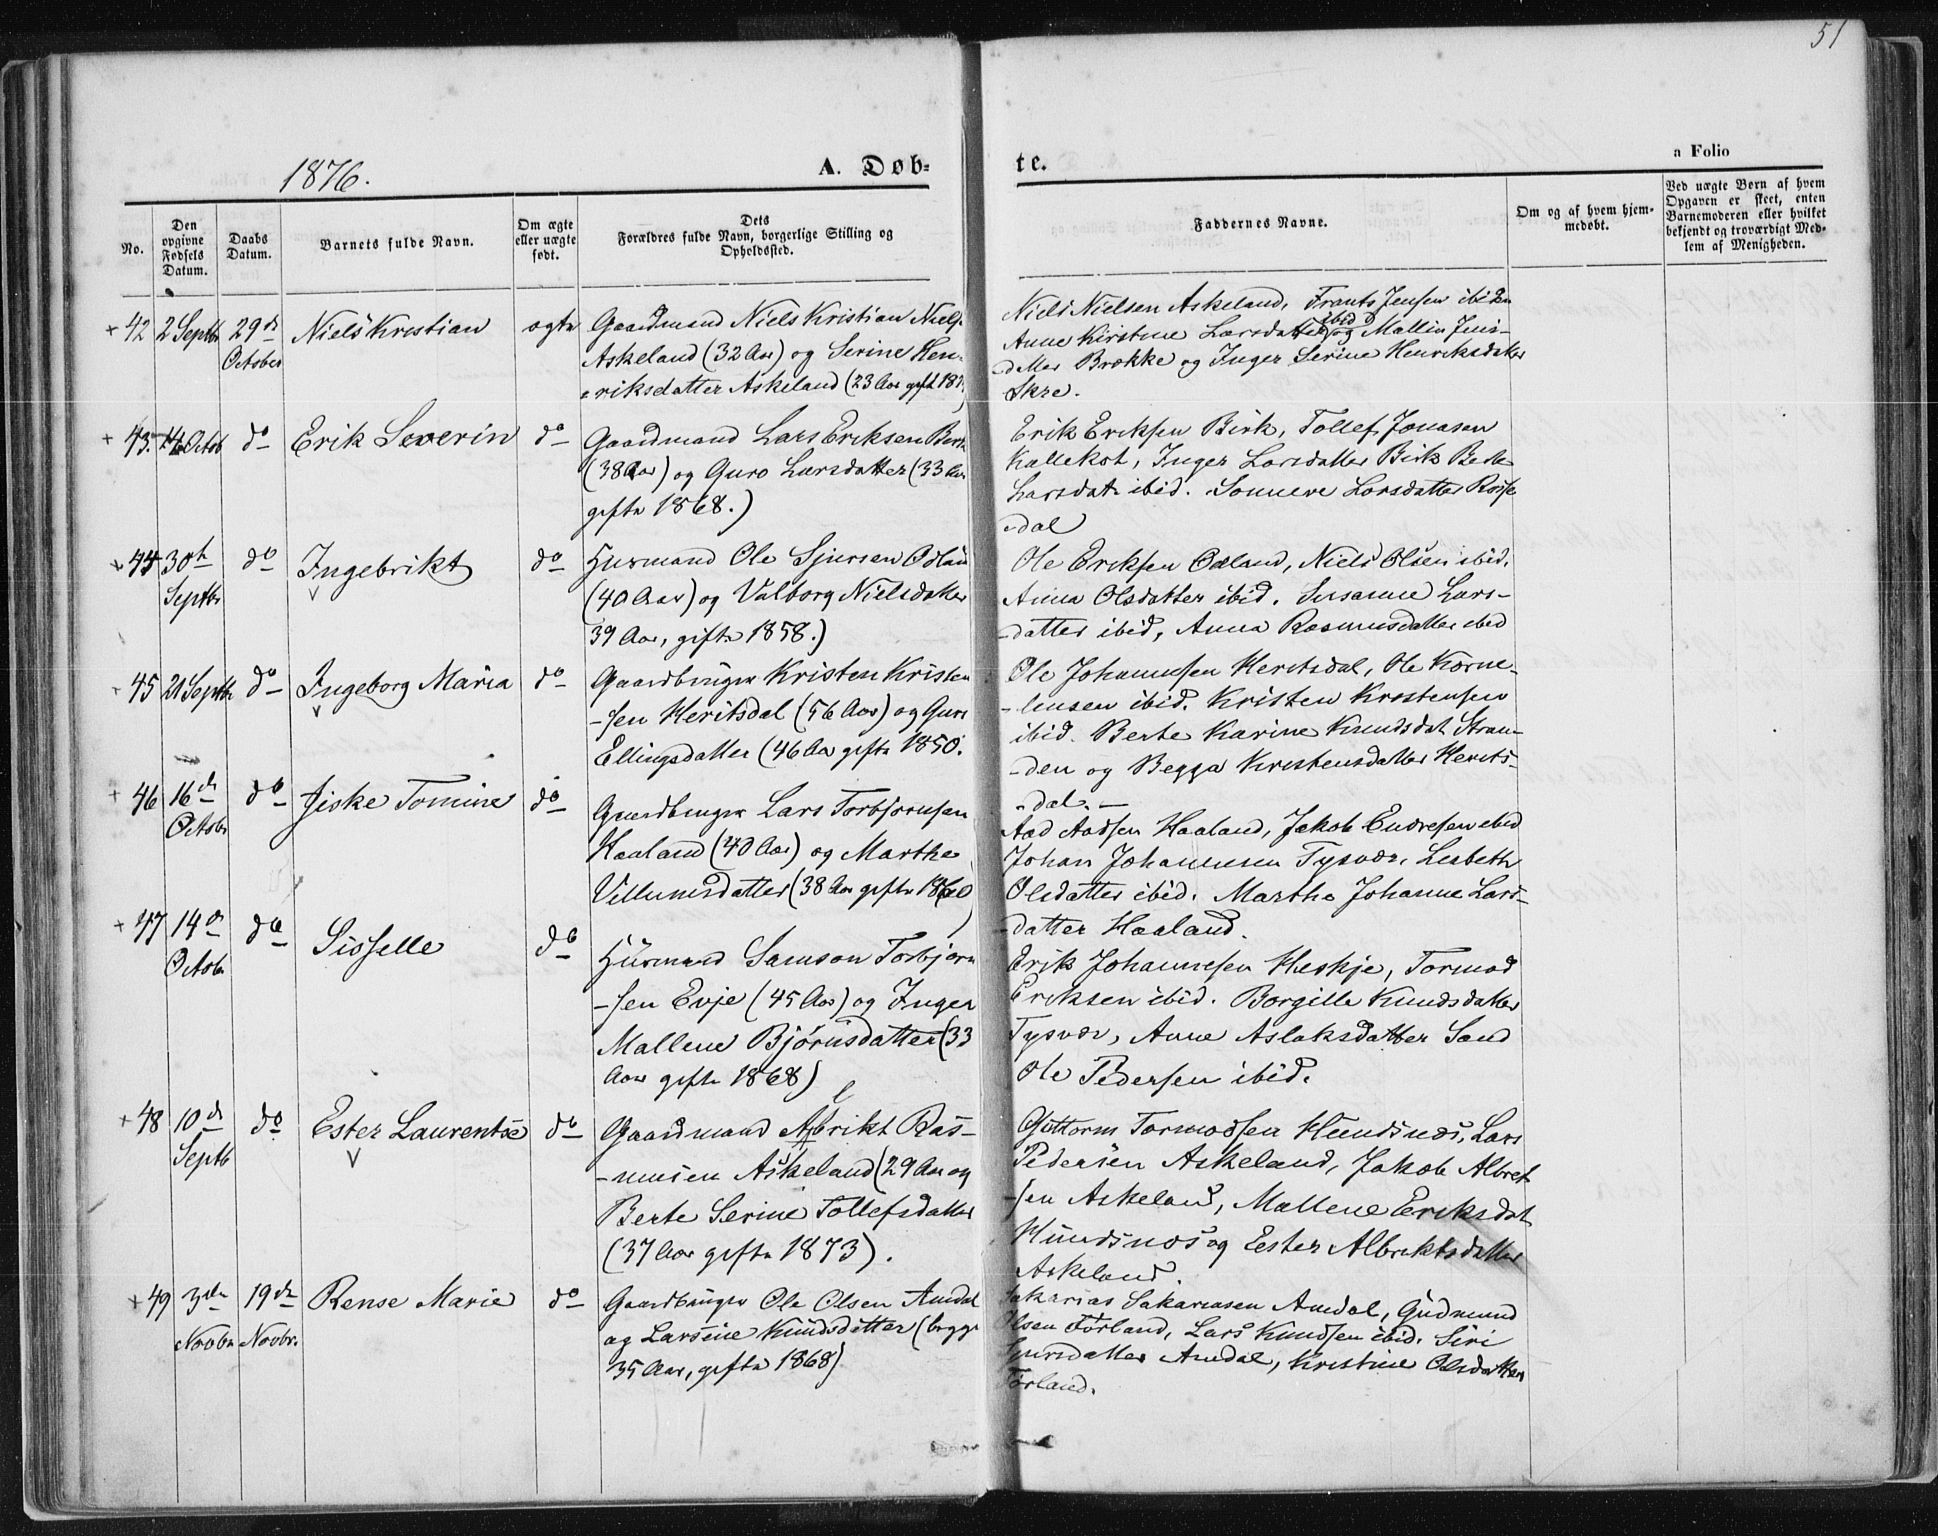 51
1876.
A. Døb-
te.
a Folio
No.
Den
opgivne
Fødsels
Datum.
Daabs
Datum.
Barnets fulde Navn.
Om ægte
eller uægte
født.
Dets
Forældres fulde Navn, borgerlige Stilling og
Opholdssted.
Faddernes Navne.
Om og af hvem hjem-
medøbt.
Ved uægte Børn af hvem
Opgaven er skeet, enten
Barnemoderen eller hvilket
bekjendt og troværdigt Med-
lem af Menigheden.
+ 42 2 Septbr 29de October
Niels Kristian
ægte
Gaardmand Niels Kristian Niels.
Askeland (32 Aar) og Serine Hen-
riksdatter Askeland (23 Aar gift 187
Niels Nielsen Askeland, Frants Jensen ibiden
Anne Kirstine Larsdatter ibid og Mallin Jens-
datter Brække og Inger Serine Henriksdatter
Skre.
+ 43. 14 Octob do
Erik Severin
do
Gaardmand Lars Eriksen Birk
(38 Aar) og Guro Larsdatter (33 Aar
gifte 1868.)
Erik Eriksen Birk, Tollef Jonasen
Kallekot, Inger Larsdatter Birk Berte
Larsdatr ibid. Sonneve Larsdatter Rosse
dal
+ 44 30th Septbr do
Ingebrikt
do
Husmand Ole Sjursen Odlan
(40 Aar) og Valborg Nielsdatter
39 Aar, gifte 1858.)
Ole Eriksen Odland, Niels Olsen ibid.
Anna Olsdatter ibid. Susanne Lars-
datter ibid, Anna Rasmusdatter ibid
+ 45 21 Septbr do
Ingeborg Maria
do
Gaardbruger Kristen Kristen
-sen Heritsdal (56 Aar) og Guro
Ellingsdatter (46 Aar gifte 1850.
Ole Johannesen Heritsdal, Ole Korne-
-liusen ibid. Kristen Kristensen
ibid. Berte Karine Knudsdat Stran-
-den og Begga Kristensdatter Herits-
-dal.-
+ 46 16de Octobr do
Jiske Tomine
do
Gaardbruger Lars Torbjørnsen
Haaland (40 Aar) og Marthe
Villumsdatter (38 Aar gifte 1860)
Aad Aadsen Haaland, Jakob Endresen ibid
Johan Johannesen Tysvær, Lesbeth
Olsdatter ibid. Marthe Johanne Lars-
-datter Haaland.
+ 47 14de Octobr do
Sisselle
do
Husmand Samson Torbjørn
-sen Evje (45 Aar) og Inger
Mallene Bjørnsdatter (33
Aar gifte 1868)
Erik Johannesen Heskje, Tormod
Eriksen ibid. Borgille Knudsdatter
Tysvær, Anne Aslaksdatter Sand
Ole Pedersen ibid.
+ 48 10de Septb do
Ester Laurentse
do
Gaardmand Albrikt Ras-
-musen Askeland (29 Aar og
Berte Serine Tollefsdatter
(37 Aar gifte 1873).
Guttorm Tormodsen Hundsnæs, Lars
Pedersen Askeland, Jakob Albret
-sen Askeland, Mallene Eriksdat
Hundsnæs og Eester Albriktsdatter
Askeland.
+ 49 3de Novbr 19de Novbr.
Rense Marie
do
Gaardbruger Ole Olsen Amdal
og Larsine Knudsdatter (begge
35 Aar, gifte 1868)
Sakarias Sakariasen Amdal, Gudmund
Olsen Førland, Lars Knudsen ibid. Siri
Sjursdatter Amdal, Kristine Olsdatter
Førland.